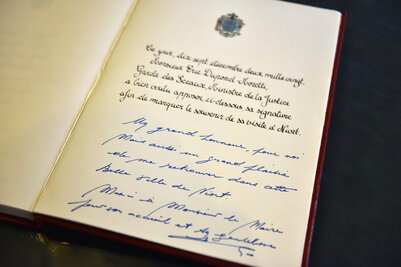 Ce jour, dix sept décembre deux mille vingt,
Monsieur Eric Dupond Moretti,
Garde des Sceaux, Ministre de la Justice
a bien voulu apposer, ci-dessous sa signature
afin de marquer le souvenir de sa visite à Niort.
Un grand honneur pour moi
Mais aussi un grand plaisir
de me retrouver dans cette
Belle ville de Niort
Merci à Monsieur le Maire
pour son accueil et sa gentillesse